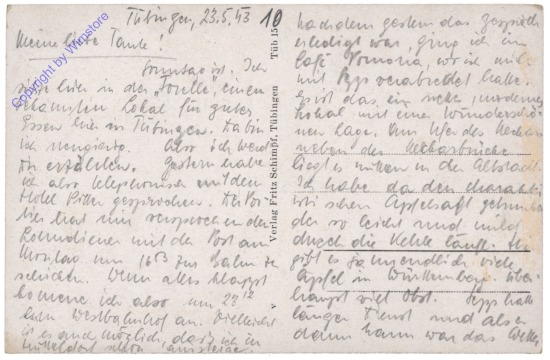 Tübingen, 23.5.43
10
Meine liebe Tante!
Sonntag ist. Ich
sitze hier in der Forelle, einem
bekannten Lokal für gutes
Essen hier in Tübingen. Da bin
ich neugierig. Also ich werde
Dir erzählen. Gestern habe
ich also telephonisch mit dem
Hotel gesprochen. Der
hier hat mir versprochen den
Lohndiener mit der Post am
Montag um 16 zur Bahn zu
schicken. Wenn alles klappt
komme ich also um 23
am Westbahnhof an. Vielleicht
ist es auch möglich, dass ich in
schon aussteige.
nachdem gestern das Gespräch
erledigt war, ging ich ins
Café Pomona, wo ich mich
mit Sepp verabredet hatte.
Es ist das ein nettes, modernes
Lokal mit einer wunderschö-
nen Lage. Am Ufer des Neckars
neben der Neckarbrücke
liegt es mitten in der Altstadt.
Ich habe da den charakteri-
stischen Apfelsaft getrunken
der so leicht und mild
durch die Kehle läuft. Es
gibt es ja unendlich viele
Äpfel in Württemberg. Über-
haupt viel Obst. Sepp hatte
langen Dienst und als er
dann kam war das Wetter
Verlag Fritz Schimpf, Tübingen Tüb 15
Copyright by Wimstore